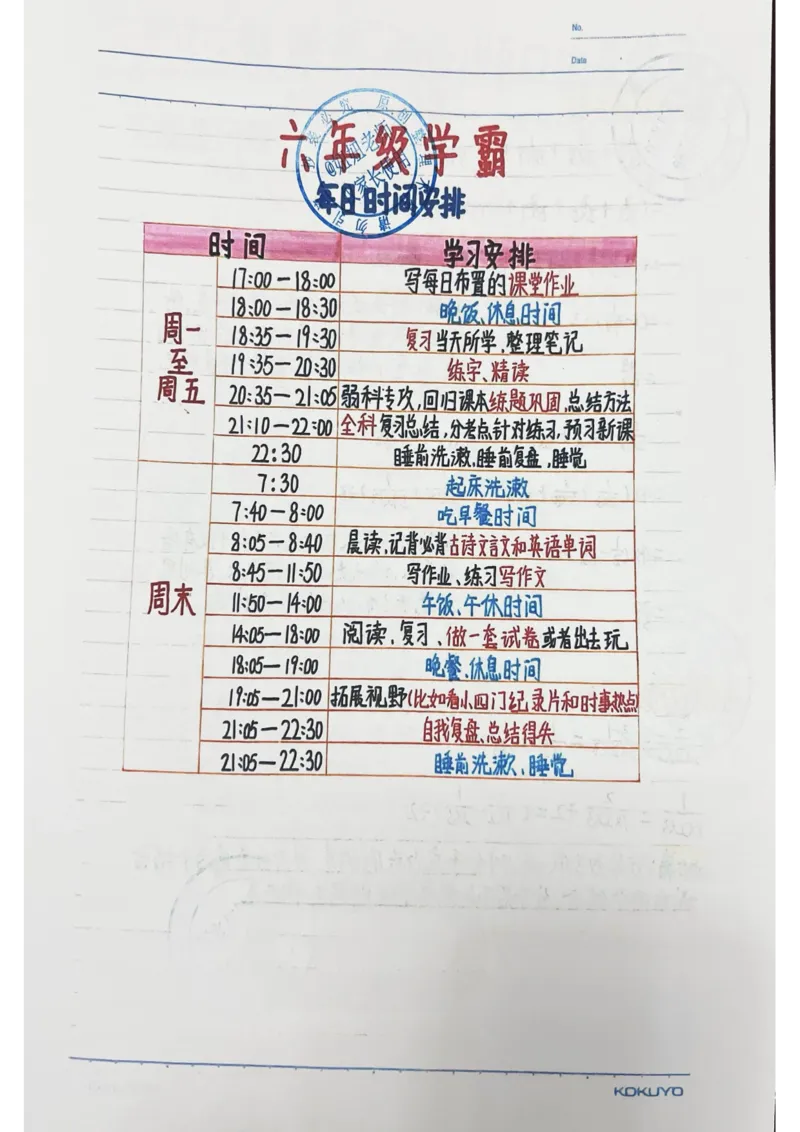 No.
Date
六年级学霸
每日时间安排
时间 学习安排
周一至周五
17:00-18:00 写每日布置的课堂作业
18:00-18:30 晚饭、休息时间
18:35-19:30 复习当天所学,整理笔记
19:35-20:30 练字、精读
20:35-21:05 弱科专攻,回归课本练题巩固,总结方法
21:10-22:00 全科复习总结,分考点针对练习,预习新课
22:30 睡前洗漱,睡前复盘,睡觉
周末
7:30 起床洗漱
7:40-8:00 吃早餐时间
8:05-8:40 晨读,记背必背古诗文言文和英语单词
8:45-11:50 写作业、练习写作文
11:50-14:00 午饭、午休时间
14:05-18:00 阅读、复习、做一套试卷或者出去玩
18:05-19:00 晚餐、休息时间
19:05-21:00 拓展视野(比如看小四门纪录片和时事热点)
21:05-22:30 自我复盘、总结得失
21:05-22:30 睡前洗漱、睡觉
KOKUYO